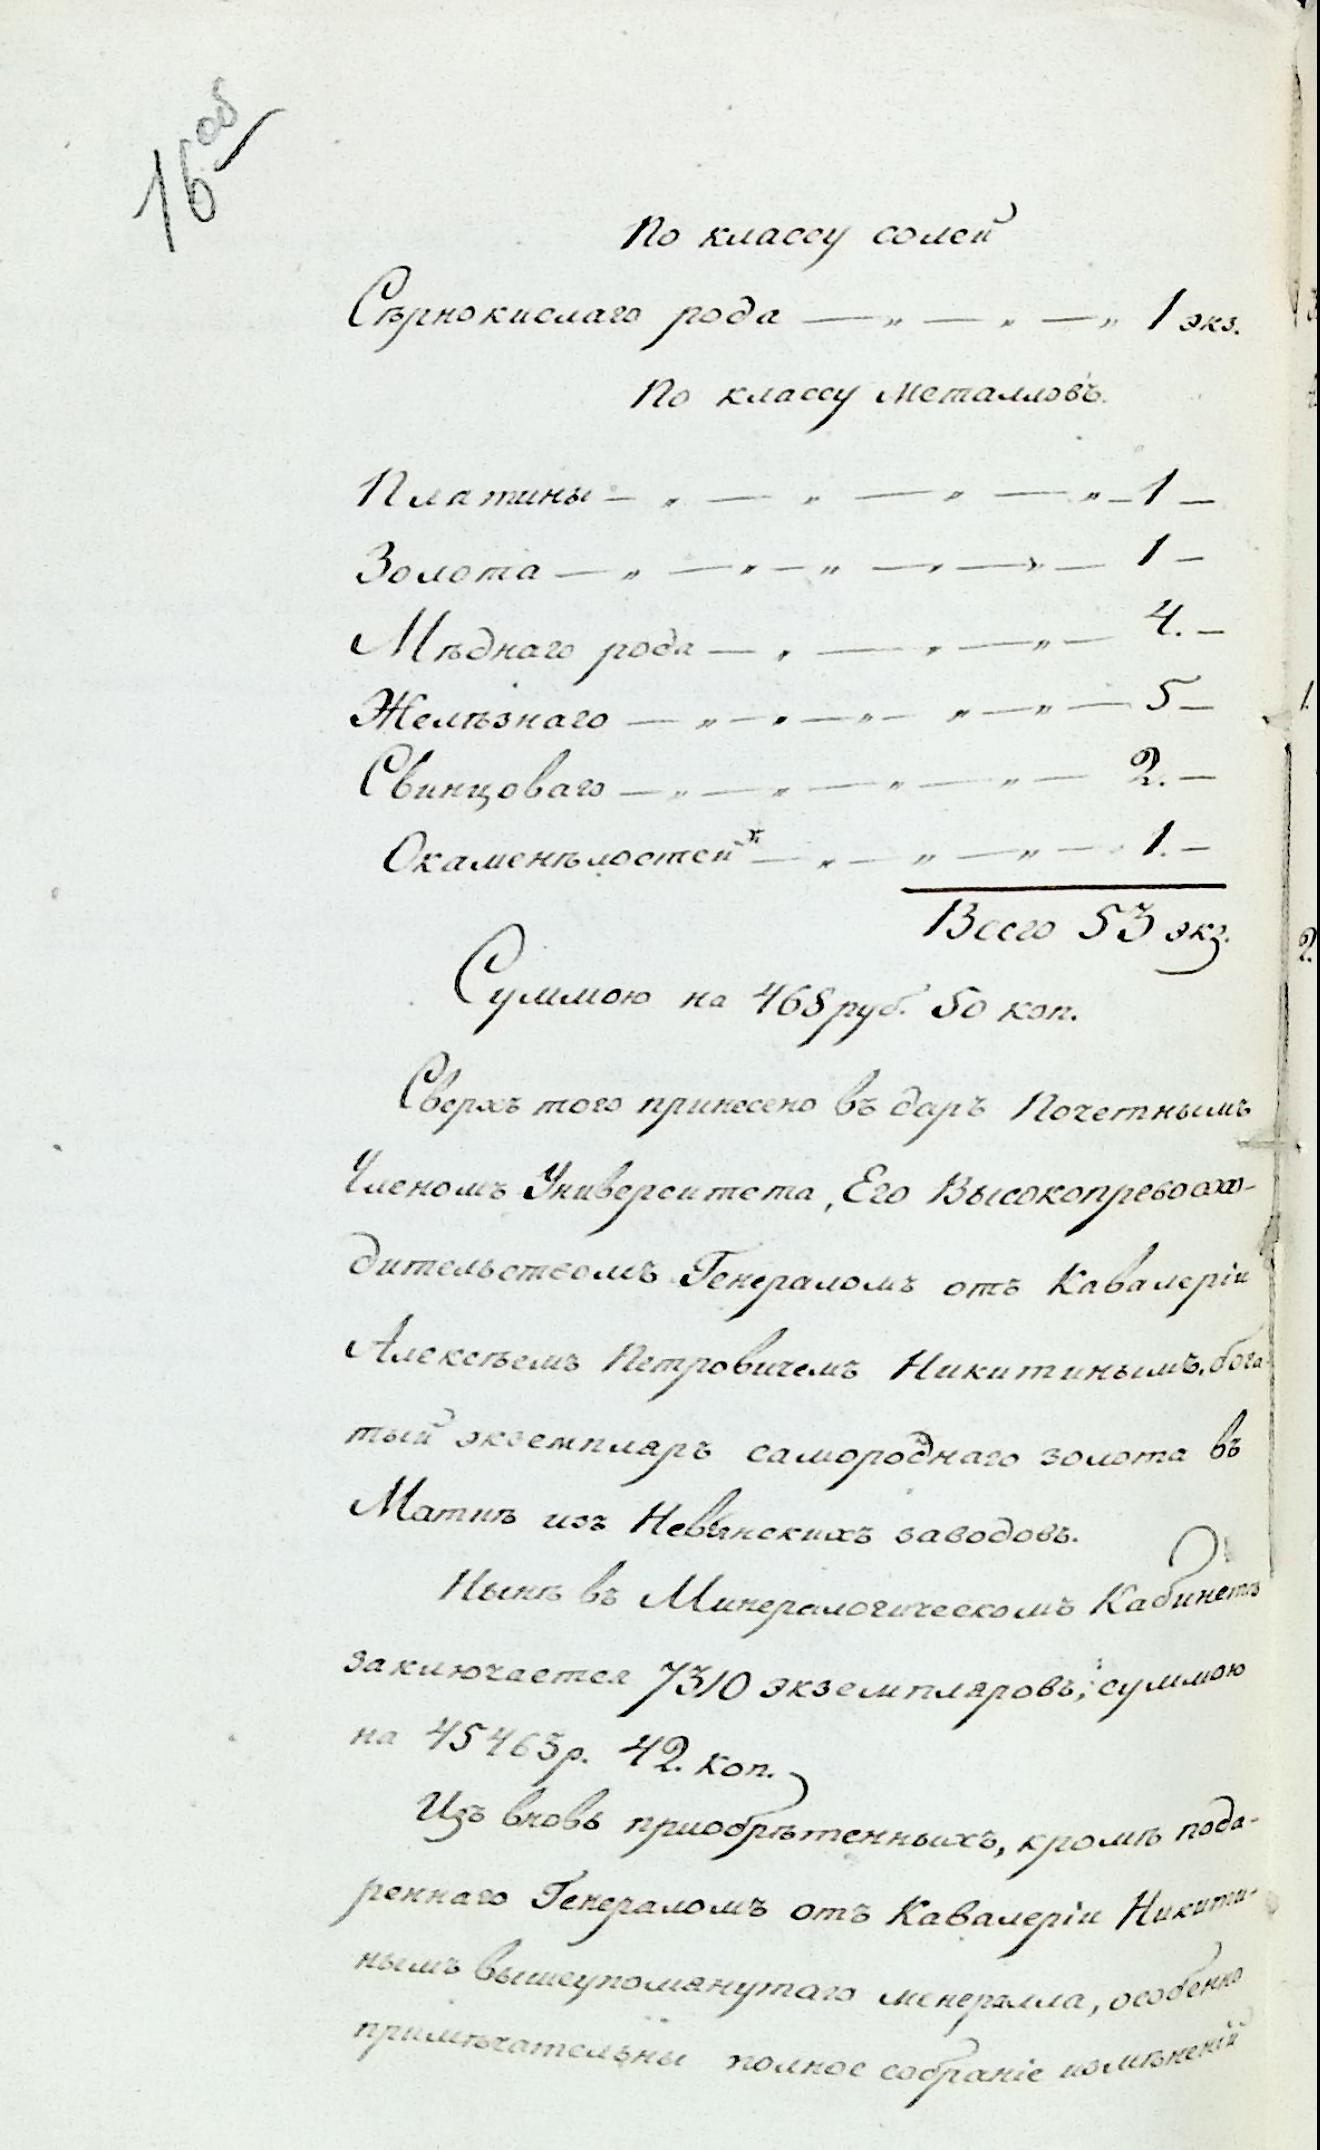 16 об
По классу солей
Сѣрнокислаго рода — „ — „ — „ 1 экз.
По классу металловъ.
Платины — „ — „ — „ — „ — 1 —
Золота — „ — „ — „ — „ — „ — 1 —
Мѣднаго рода — „ — „ — „ — 4. —
Желѣзнаго — „ — „ — „ — „ — „ — 5 —
Свинцоваго — „ — „ — „ — „ — 2. —
Окаменѣлостей — „ — „ — „ — 1. —
Всего 53 экз.
Суммою на 468 руб. 50 коп.
Сверхъ того принесено въ даръ Почетнымъ
Членомъ Университета, Его Высокопревосхо-
дительствомъ Генераломъ отъ Кавалеріи
Алексѣемъ Петровичемъ Никитинымъ, бога-
тый экземпляръ самороднаго золота въ
Матиѣ изъ Невьянскихъ заводовъ.
Нынѣ въ Минералогическомъ Кабинетѣ
заключается 7310 экземпляровъ, суммою
на 45463 р. 42. коп.
Изъ вновь приобрѣтенныхъ, кромѣ пода-
реннаго Генераломъ отъ Кавалеріи Никити-
нымъ вышеупомянутаго менералла, особенно
примѣчательны полное собраніе измѣненій